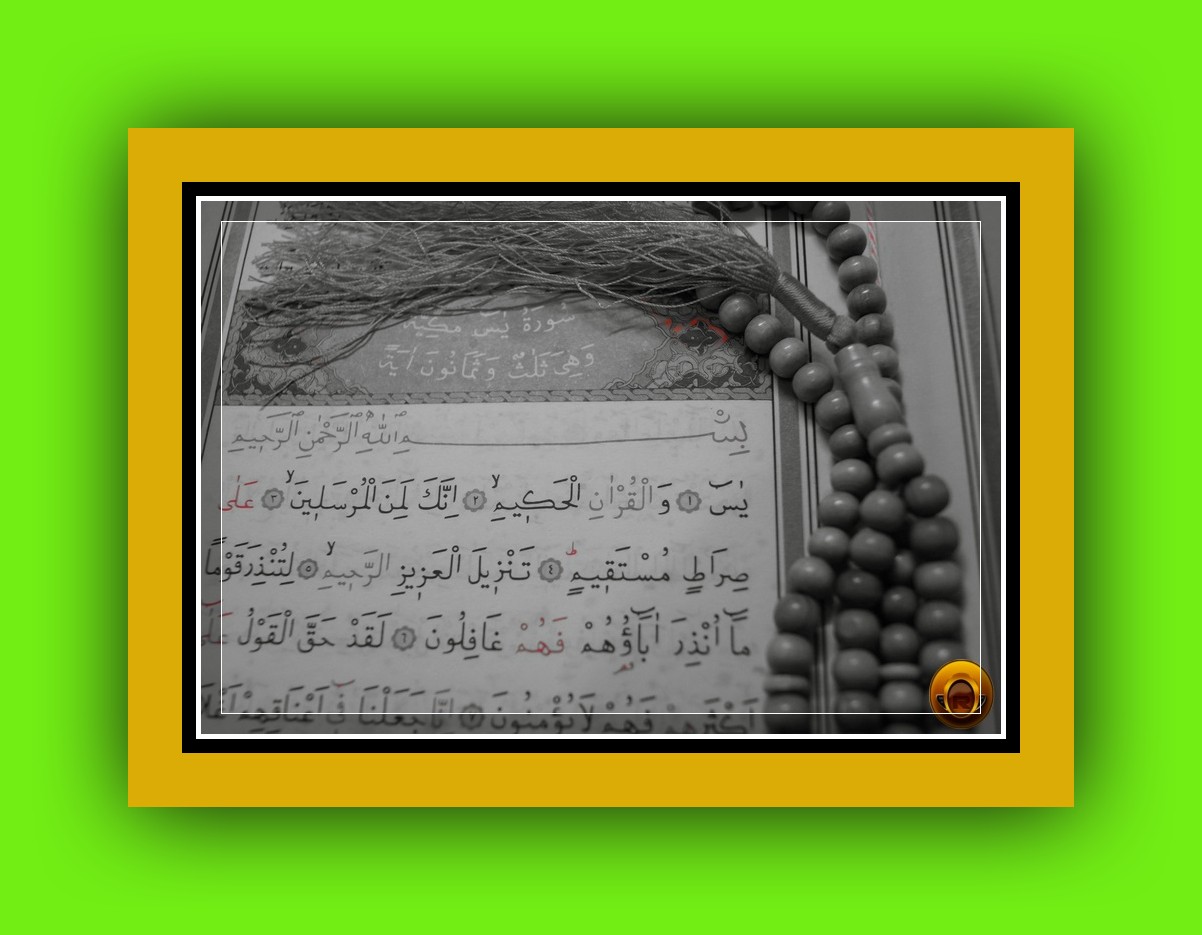 سُورَةُ يٰسٓ مَكِّيَّةٌ
وَهِىَ ثَلٰثٌ وَثَمَانُونَ اٰيَةً
بِسْمِ اللّٰهِ الرَّحْمٰنِ الرَّحٖيمِ
يٰسٓ ﴿١﴾ وَالْقُرْاٰنِ الْحَكٖيمِۙ ﴿٢﴾ اِنَّكَ لَمِنَ الْمُرْسَلٖينَۙ ﴿٣﴾ عَلٰى
صِرَاطٍ مُسْتَقٖيمٍؕ ﴿٤﴾ تَنْزٖيلَ الْعَزٖيزِ الرَّحٖيمِۙ ﴿٥﴾ لِتُنْذِرَ قَوْمًا
مَٓا اُنْذِرَ اٰبَٓاؤُ۬هُمْ فَهُمْ غَافِلُونَ ﴿٦﴾ لَقَدْ حَقَّ الْقَوْلُ عَلٰٓى
اَكْثَرِهِمْ فَهُمْ لَا يُؤْمِنُونَ ﴿٧﴾ اِنَّا جَعَلْنَا فٖٓى اَعْنَاقِهِمْ اَغْلَالًا